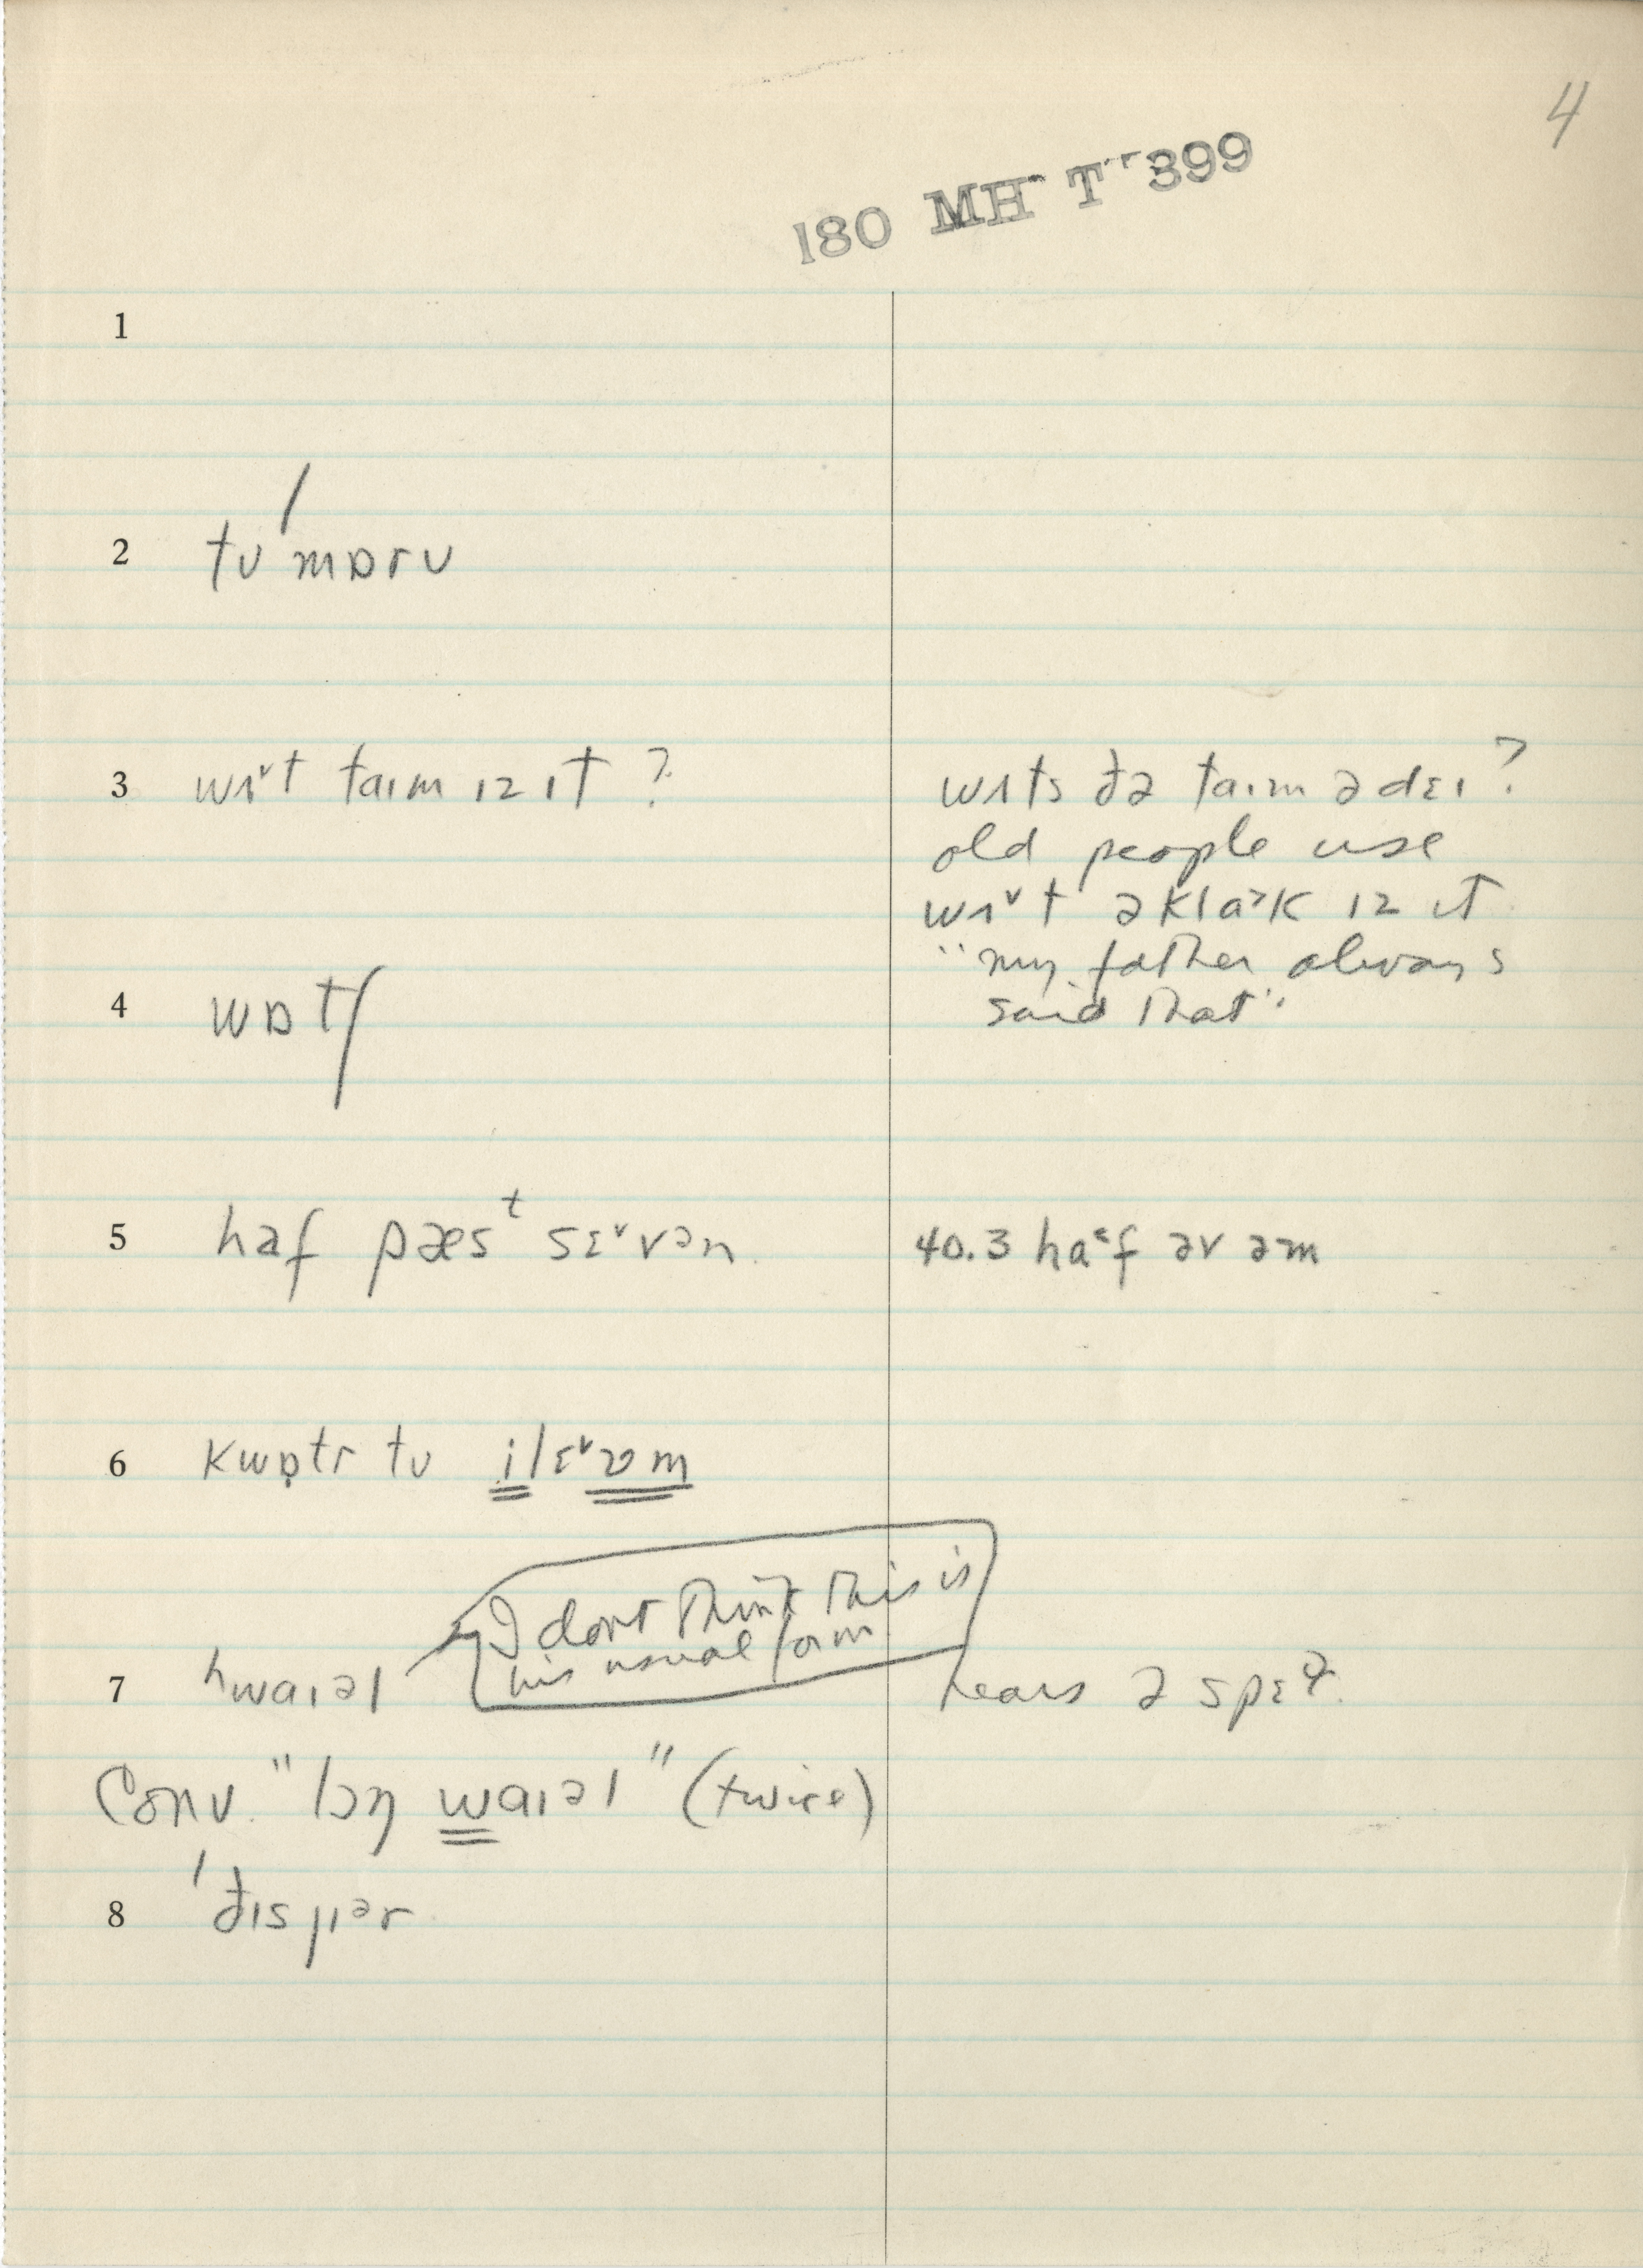 4
180 MH T 399
1
2 tʊ mɒrʊ
3 wʌ˅t taɪm ɪz ɪt ?
wʌts ðə taɪm ə dɛɪ ?
old people use
wʌ˅t əklɑ˃k ɪz ɪt
"my father always
said that"
4 wɒtʃ
5 haf pæsᵗ sɛ˅vən
40.3 ha˂f əv əm
6 kwɒ̣tr tʊ ilɛ˅vm
I dont think this is
his usual form
7 ʰwaɪəl
hears ə spɛ
Conv. "lɔŋ waɪəl" (twice)
8 'ðɪs jɪər